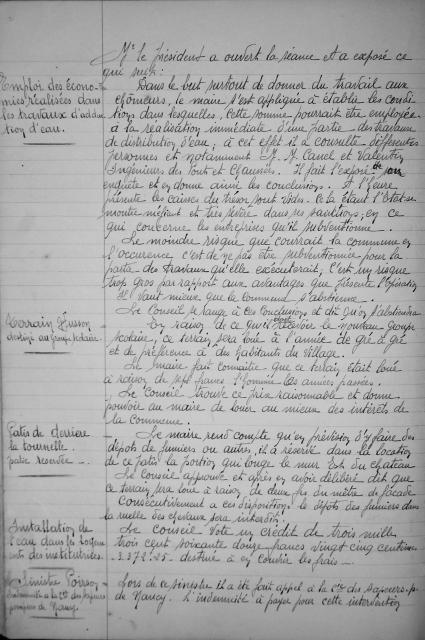 Mr le président a ouvert la séance et a exposé ce
qui suit :
Emploi des écono-
mies réalisées dans
les travaux d'adduc
tion d'eau.
Dans le but surtout de donner du travail aux
chômeurs, le maire s'est appliqué à établir les condi
tions dans lesquelles, cette somme pourrait être employée
à la réalisation immédiate d'une partie des travaux
de distribution d'eau ; à cet effet il a consulté différentes
personnes et notamment M. M. Canel et Valentin
Ingénieurs des Ponts et Chaussées. Il fait l'exposé de son
enquête et en donne ainsi les conclusions. A l'heure
présente les caisses du trésor sont vides. Ce la étant l'Etat se
montre méfiant et très sévère dans ses sanctions, en ce
qui concerne les entreprises qu'il subventionne.
Le moindre risque que courrait la commune en
l'occurence c'est de ne pas être subventionnée pour la
partie des travaux qu'elle exécuterait, c'est un risque
trop gros par rapport aux avantages que présente l'opération
Il vaut mieux que la commune s'abstienne.
Le Conseil se range à ces conclusions et dit qu'on s'abstiendra
Terrain Husson
destiné au groupe scolaire
En raison de ce qu'il doit recevoir le nouveau groupe
scolaire, ce terrain sera loué à l'année de gré à gré
et de préférence à des habitants du village.
Le maire fait connaître que ce terrain était loué
à raison de sept francs l'hommée les années passées.
Le Conseil trouve ce prix raisonnable et donne
pouvoir au maire de louer au mieux des intérêts de
la Commune.
Patis de derrière
la tournelle.
partie réservée
Le maire rend compte qu'en prévision d'y faire des
dépôts de fumiers ou autres, il a réservé dans la location
de ce patis la portion qui longe le mur Est du château
Le Conseil approuve et après en avoir délibéré dit que
ce terrain sera loué à raison de deux frs du mètre de façade
Consécutivement à ces dispositions le dépôt des fumiers dans
la ruelle des chevaux sera interdit.
Installation de
l'eau dans les logem
ents des institutrices.
Le Conseil vote un crédit de trois mille
trois cent soixante douze francs vingt cinq centimes
3.372f25 destiné à en couvrir les frais
Sinistre Poirson
indemnité à la Cie des sapeurs
pompiers de Nancy.
Lors de ce sinistre il a été fait appel à la Cie des sapeurs-p.
de Nancy. L'indemnité à payer pour cette intervention